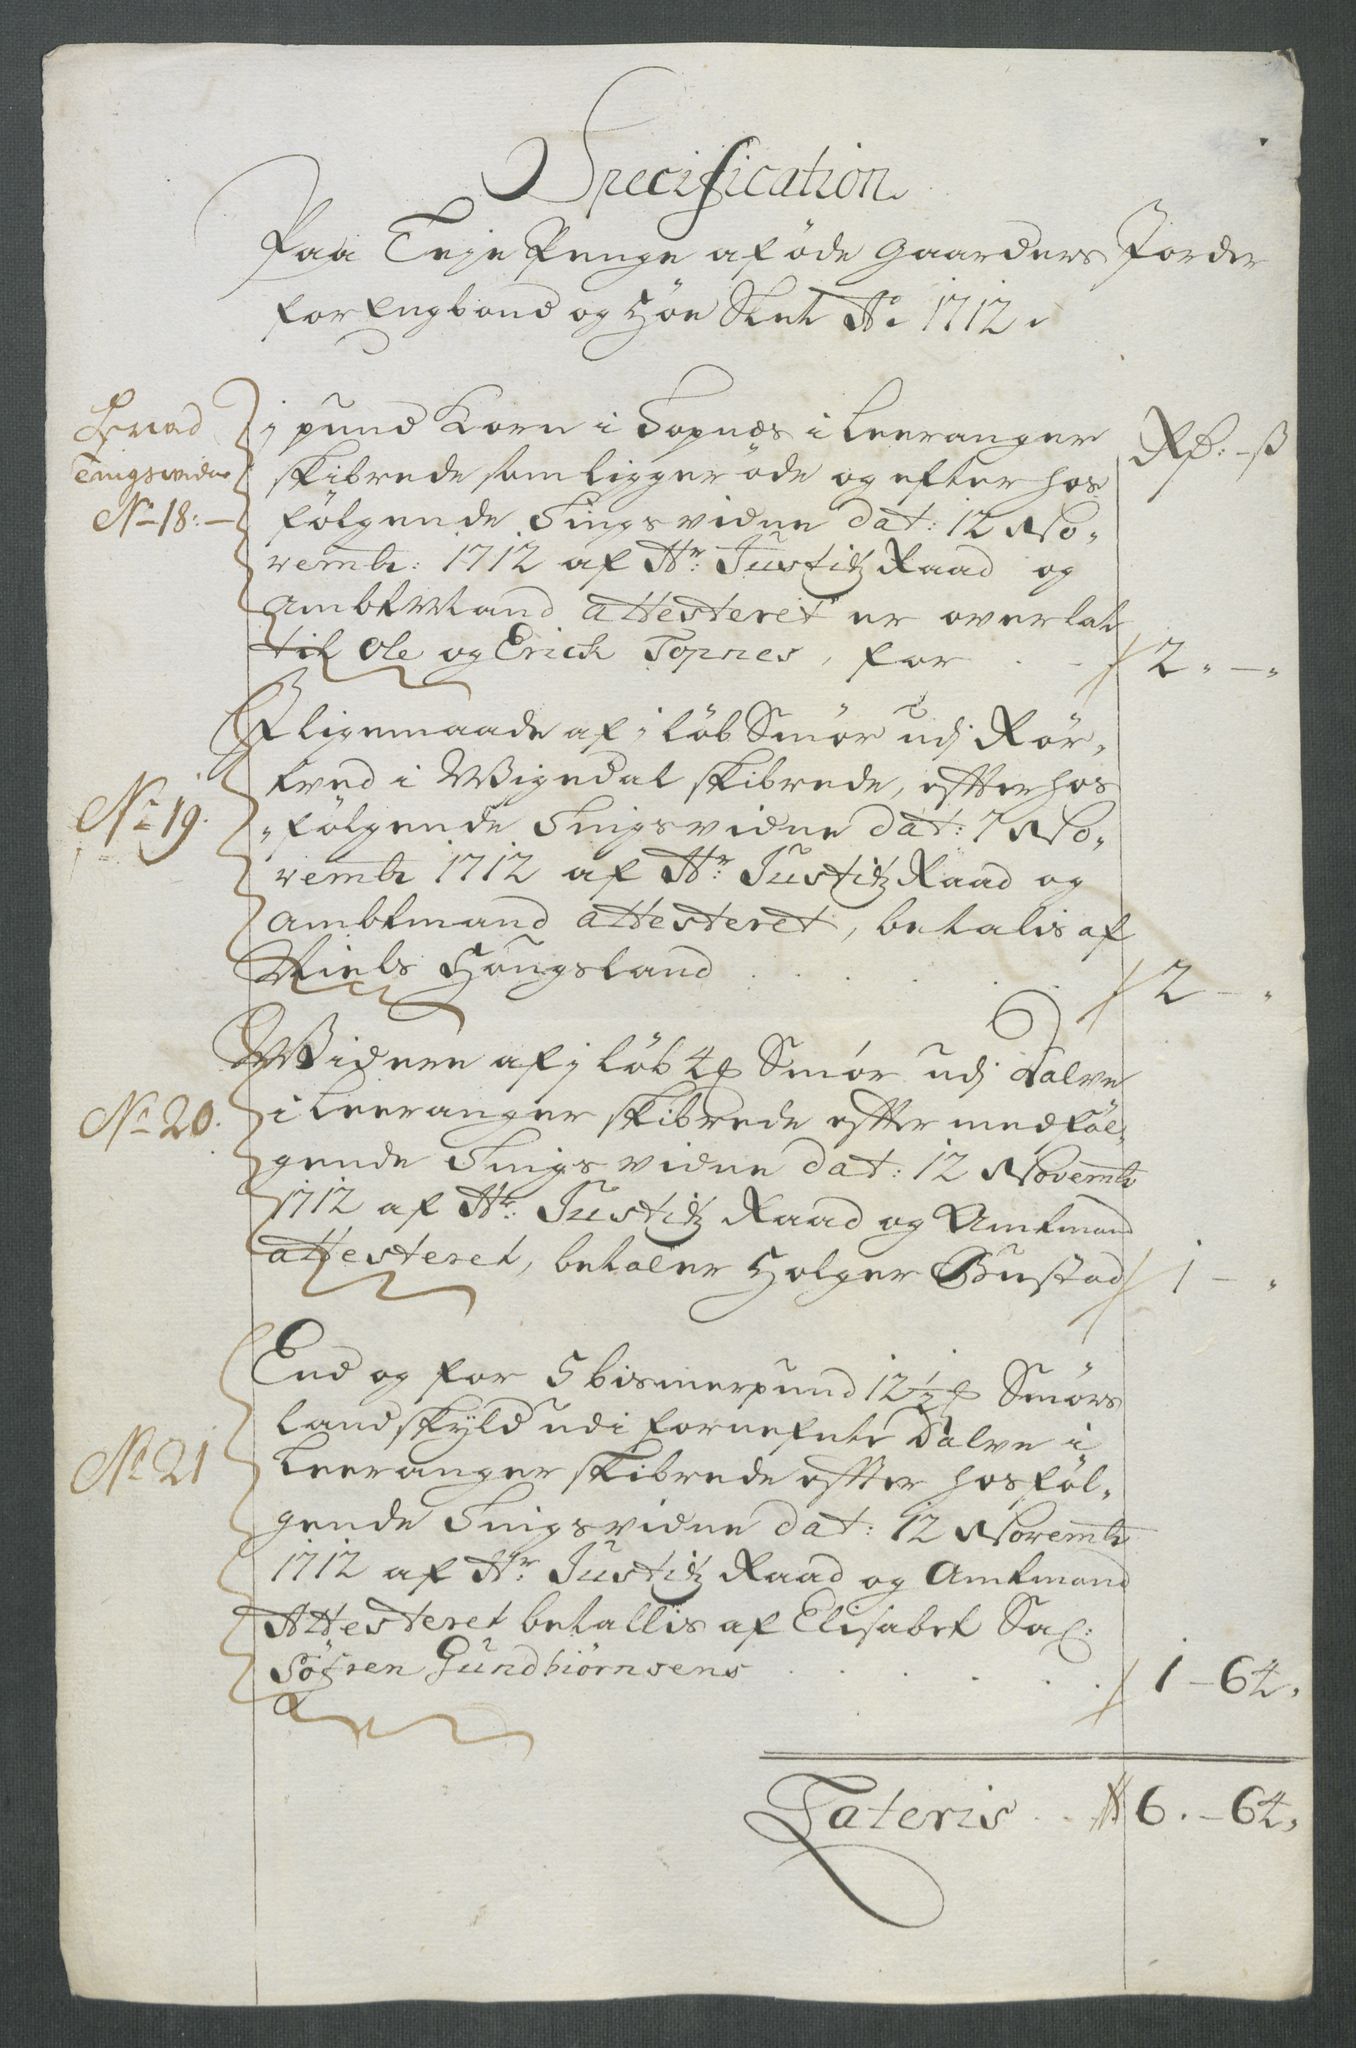 Specification
Paa Leje Penge af öde Gaarders Jorder
for Engbond og Höe Slet A:o 1712.
Rdr: - ß
Hervid
Tingsvidne
No 18: -
j pund Korn i Topnæs i Leeranger
skibrede som ligger öde og efter hos
fölgende Tingsvidne dat: 12 No-
vembr: 1712 af Hr: Justitz Raad og
Ambtmand attesteret er overlat
til Ole og Erich Topnes, for . . 2 " - "
Jligemaade af j löb Smör udj Rör-
tved i Wigedal skibrede, efter hos
No 19.
fölgende Tingsvidne dat: 7 No-
vembr 1712 af Hr: Justitz Raad og
Ambtmand attesteret, betalis af
Niels Höugsland . . . . 2 - "
Widere af j löb 4 Smör udj Dalve
No 20.
i Leeranger skibrede efter medföl-
gende Tingsvidne dat: 12 Novembr
1712 af Hr: Justitz Raad og Amtmand
attesteret, betaler Holger Bustad 1 - "
End og for 5 bismerpund 12 1/2 Smörs
landskyld udi fornefnte Dalve i
No 21
Leeranger skibrede efter hosföl-
gende Tingsvidne dat: 12 Novembr
1712 af Hr Justitz Raad og Amtmand
Attesteret betallis af Elisabet Sal:
Söfren Gundbiörnsens . . . . 1 - 64,
Lateris . . 6. - 64,